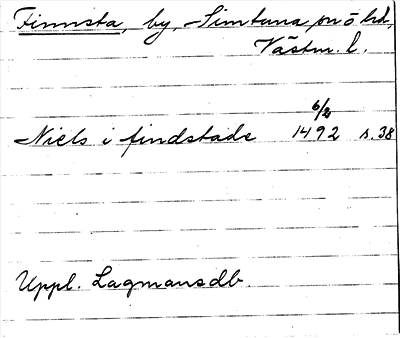 Finnsta, by, Simtuna sn o hd,
Västm. l.
6/2
Niels i findstade 1492 s. 38
Uppl. Lagmansdb.